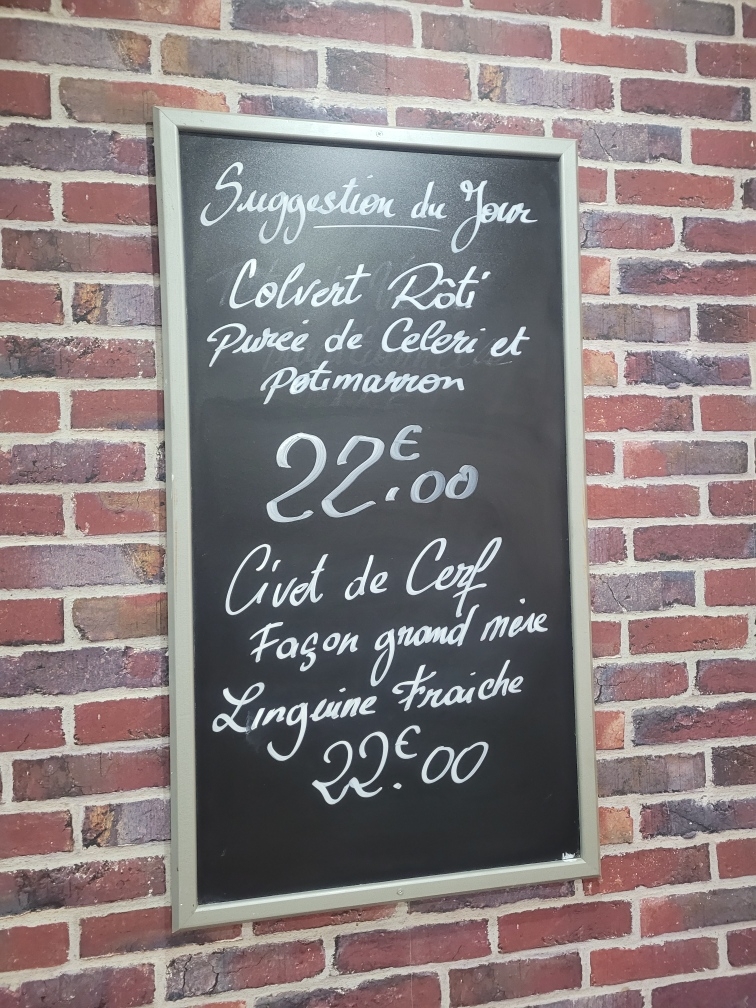 Suggestion du Jour
Colvert Rôti
Purée de Celeri et
Potimarron
22€.00
Civet de Cerf
Façon grand mère
Linguine Fraiche
22€.00